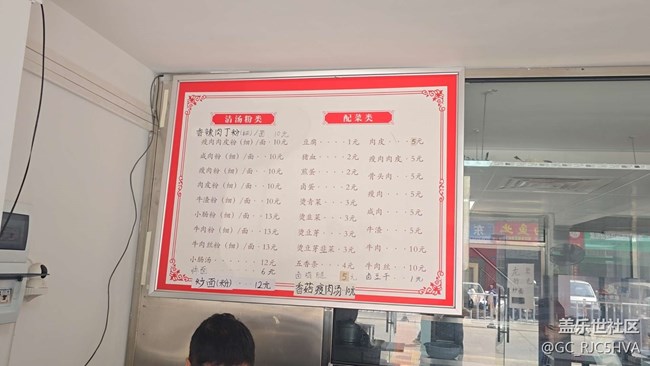 清汤粉类
香辣肉丁粉
瘦肉肉皮粉（细）/面·10元
咸肉粉（细）/面··10元
瘦肉粉（细）/面··10元
肉皮粉（细）/面··10元
牛渣粉（细）/面··
小肠粉（细）/面··13元
牛肉粉（细）/面··13元
牛肉丝粉（细）/面·13元
小肠汤············12元
6元
炒面(粉)·····12元
配菜类
豆腐·······1元
猪血·······2元
煎蛋·······2元
卤蛋·······2元
烫青菜···3元
烫韭菜···3元
烫豆芽···3元
烫豆芽韭菜··3元
五香干···4元
香菇瘦肉汤
肉皮
瘦肉肉皮··5元
骨头肉···5元
瘦肉·······5元
咸肉·······5元
牛渣·······5元
牛肉·······10元
牛肉丝···10元
卤豆干··1元
盖乐世社区
@GC_RJC5HVA